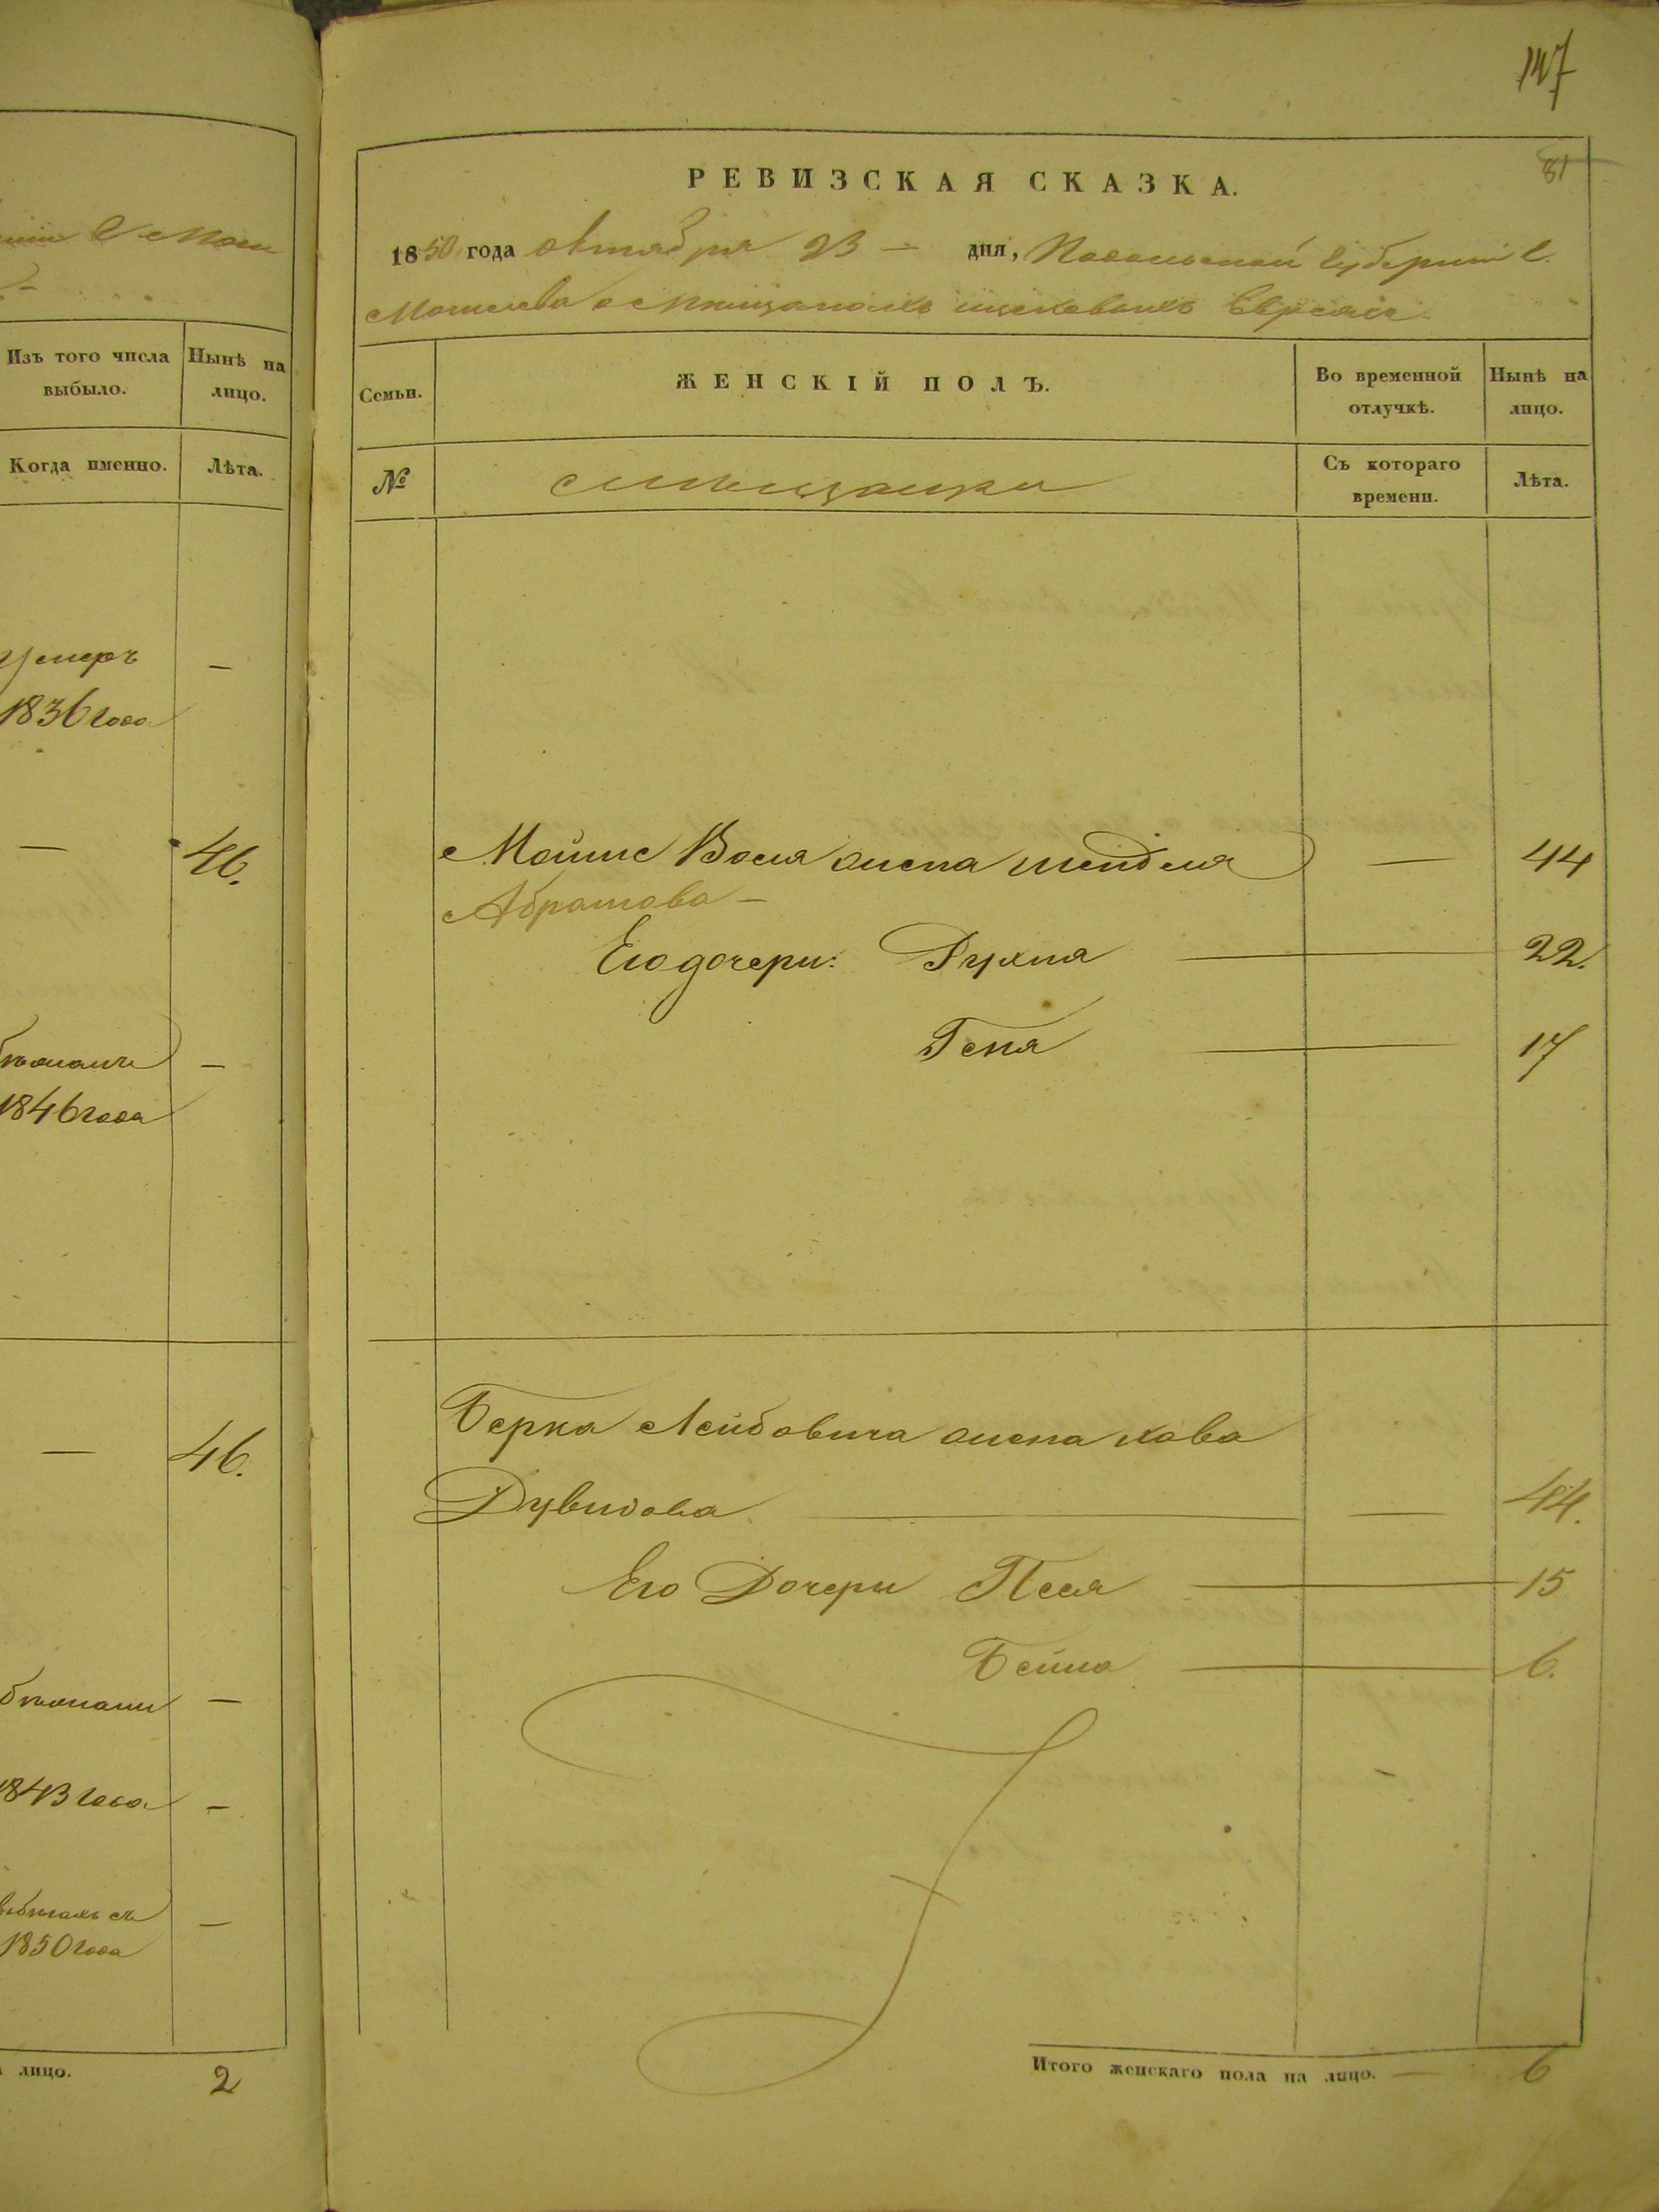 147
81
РЕВИЗСКАЯ СКАЗКА.
1850 года октября 23 – дня, Подольской губернии г.
Могилева о мещанахъ Евреяхъ
Изъ того числа выбыло.
Нынѣ на лицо.
Когда именно.
Лѣта.
умеръ
1836 года
—
—
46.
—
1846 года
—
46.
—
1843 года
—
1850 года
—
лицо.
2
Семьи.
ЖЕНСКІЙ ПОЛЪ.
Во временной отлучкѣ.
Нынѣ на лицо.
№
мещанки
Съ котораго времени.
Лѣта.
жена Шейдля — 44
Абрамова –
Его дочери: Рухля — 22.
Геня — 17
Берка Лейбовича жена Хава
Дувидова — — 44.
Его Дочери Песя — 15
Бейла — 6.
Итого женскаго пола на лицо. — 6